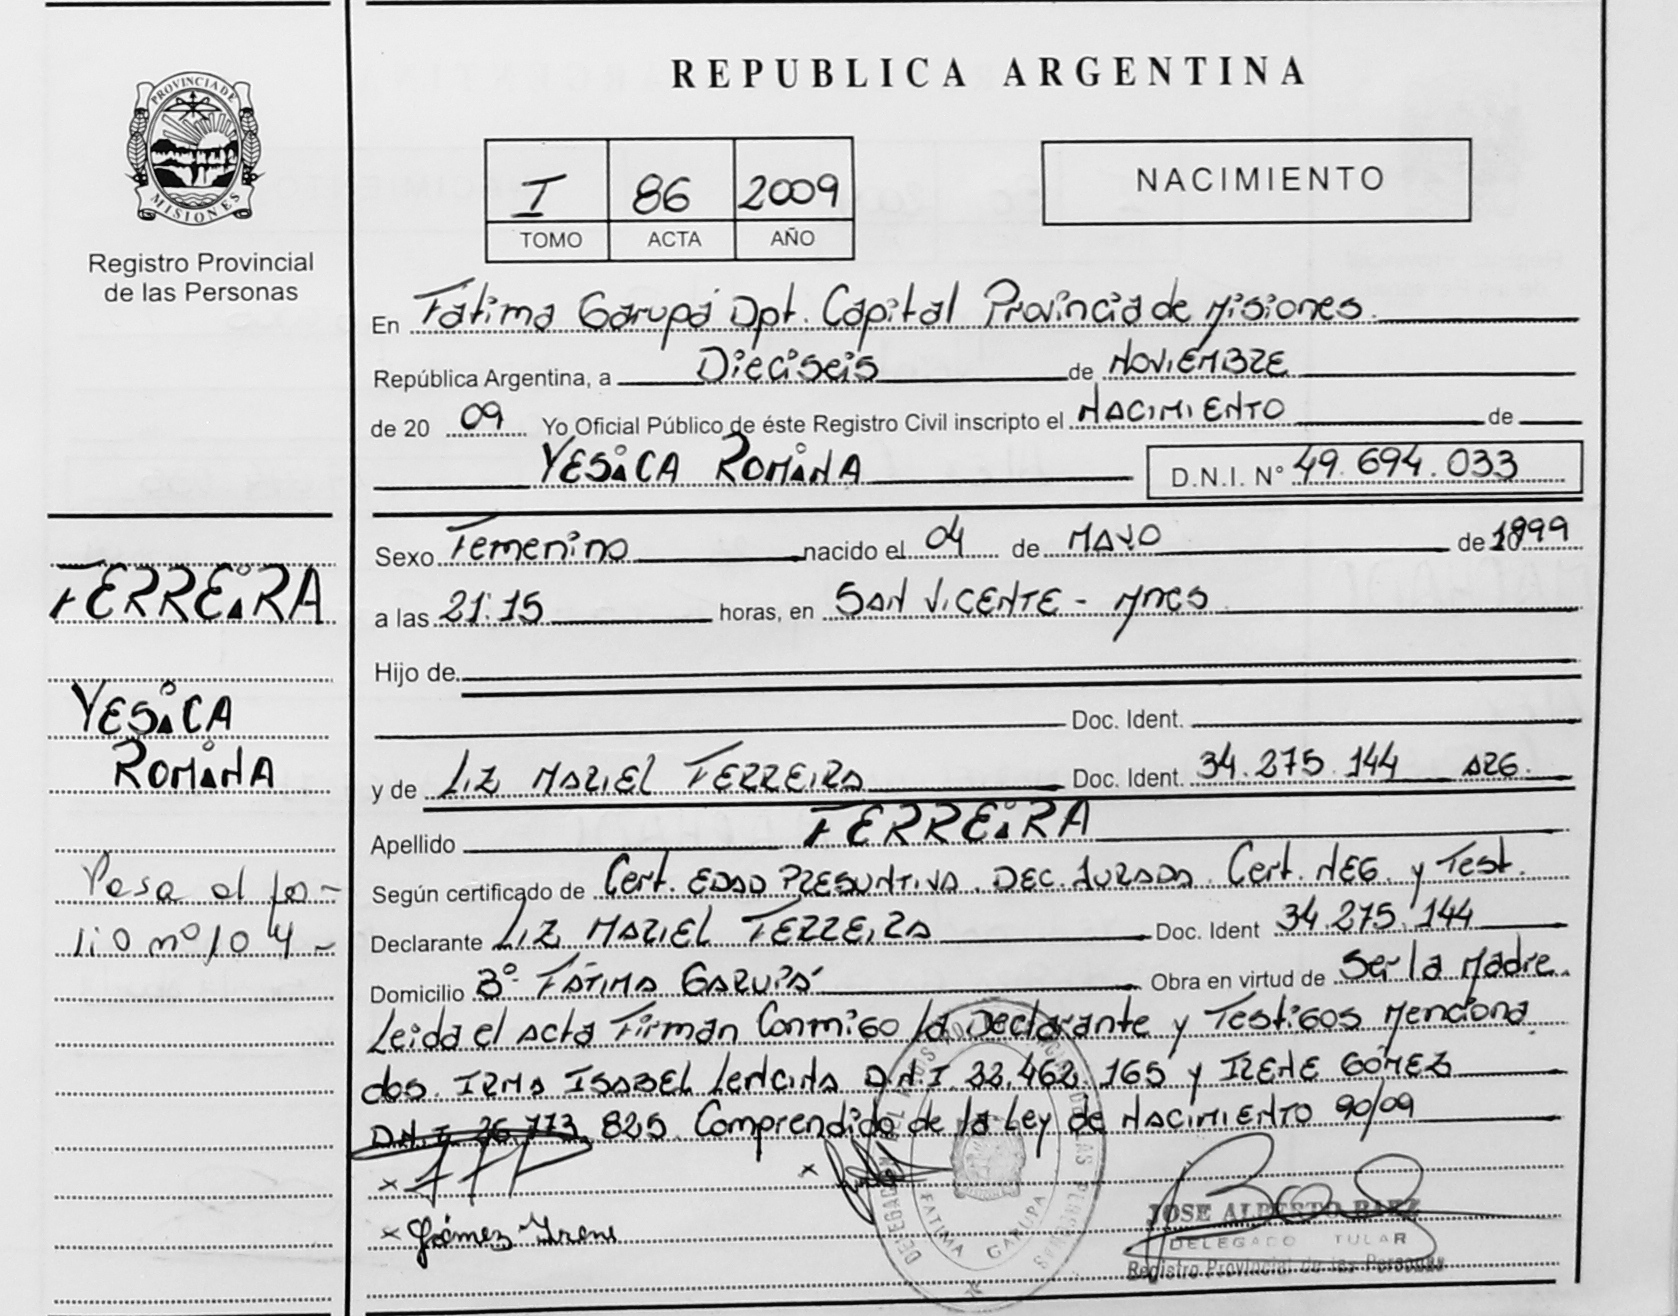 REPUBLICA ARGENTINA
PROVINCIA DE
MISIONES
Registro Provincial
de las Personas
I 86 2009
TOMO ACTA AÑO
NACIMIENTO
En Fátima Garupá Dpt. Capital Provincia de Misiones.
República Argentina, a Dieciseis de NOVIEMBRE
de 20 09 Yo Oficial Público de éste Registro Civil inscripto el NACIMIENTO de
YESICA ROMINA D.N.I. N° 49.694.033
Sexo Femenino nacido el 04 de MAYO de 1999
a las 21:15 horas, en SAN VICENTE - Mnes
Hijo de
Doc. Ident.
y de LIZ MARIEL FERREIRA Doc. Ident. 34.275.144 ARG.
Apellido FERREIRA
Según certificado de Cert. EDAD PRESUNTIVA. DEC. JURADA. Cert. NEG. y Test.
Declarante LIZ MARIEL FERREIRA Doc. Ident 34.275.144
Domicilio B° FÁTIMA GARUPÁ Obra en virtud de Ser la Madre.
Leida el acta Firman Conmigo la Declarante y Testigos Menciona
dos. IRMA ISABEL LENCINA D.N.I. 33.462.165 y IRENE GÓMEZ
D.N.I. 26.773.825. Comprendido de la Ley de NACIMIENTO 90/09
FERREIRA
YESICA
ROMINA
Pasa al fo-
lio nº 104 -
x
x
x Gómez Irene
FATIMA GARUPA
JOSE ALBERTO BAEZ
DELEGADO TULAR
Registro Provincial de las Personas